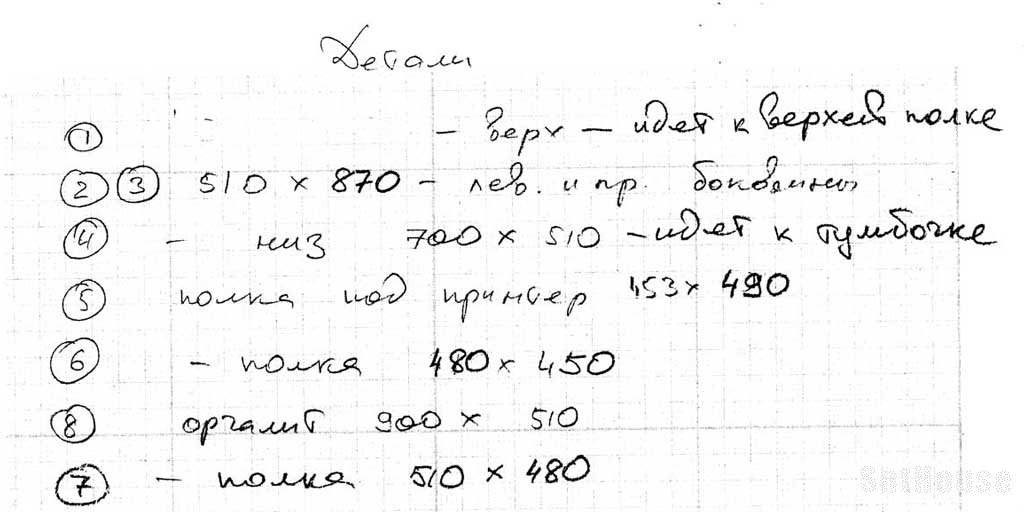 Детали
① - верх - идет к верхей полке
② ③ 510 x 870 - лев. и пр. боковины
④ - низ 700 x 510 - идет к тумбочке
⑤ полка под принтер 453 x 490
⑥ - полка 480 x 450
⑧ оргалит 900 x 510
⑦ - полка 510 x 480
ShtHouse